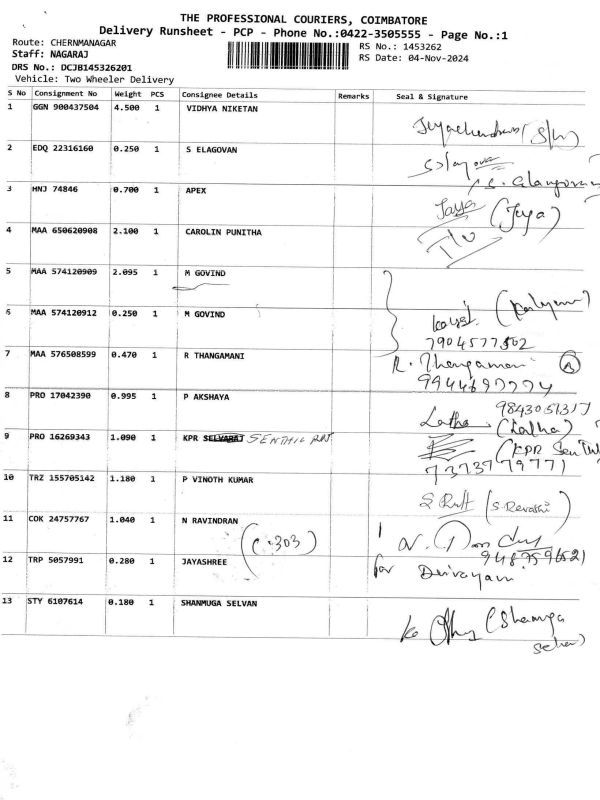 THE PROFESSIONAL COURIERS, COIMBATORE
Delivery Runsheet - PCP - Phone No.:0422-3505555 - Page No.:1
Route: CHERNMANAGAR
RS No.: 1453262
Staff: NAGARAJ
RS Date: 04-Nov-2024
DRS No.: DCJB145326201
Vehicle: Two Wheeler Delivery
S No Consignment No Weight PCS Consignee Details Remarks Seal & Signature
1 GGN 900437504 4.500 1 VIDHYA NIKETAN
2 EDQ 22316160 0.250 1 S ELAGOVAN
3 HNJ 74846 0.700 1 APEX
Jaya (Jeya)
4 MAA 650620908 2.100 1 CAROLIN PUNITHA
5 MAA 574120909 2.095 1 M GOVIND
6 MAA 574120912 0.250 1 M GOVIND
7904577502
7 MAA 576508599 0.470 1 R THANGAMANI
R. Thangamani
8 PRO 17042390 0.995 1 P AKSHAYA
Latha (Latha)
9 PRO 16269343 1.090 1 KPR SELVARAJ SENTHIL
(KPR Senthil
7373779771
10 TRZ 155705142 1.180 1 P VINOTH KUMAR
(S Revathi)
11 COK 24757767 1.040 1 N RAVINDRAN
(C-303)
12 TRP 5057991 0.280 1 JAYASHREE
for Deivayani
13 STY 6107614 0.180 1 SHANMUGA SELVAN